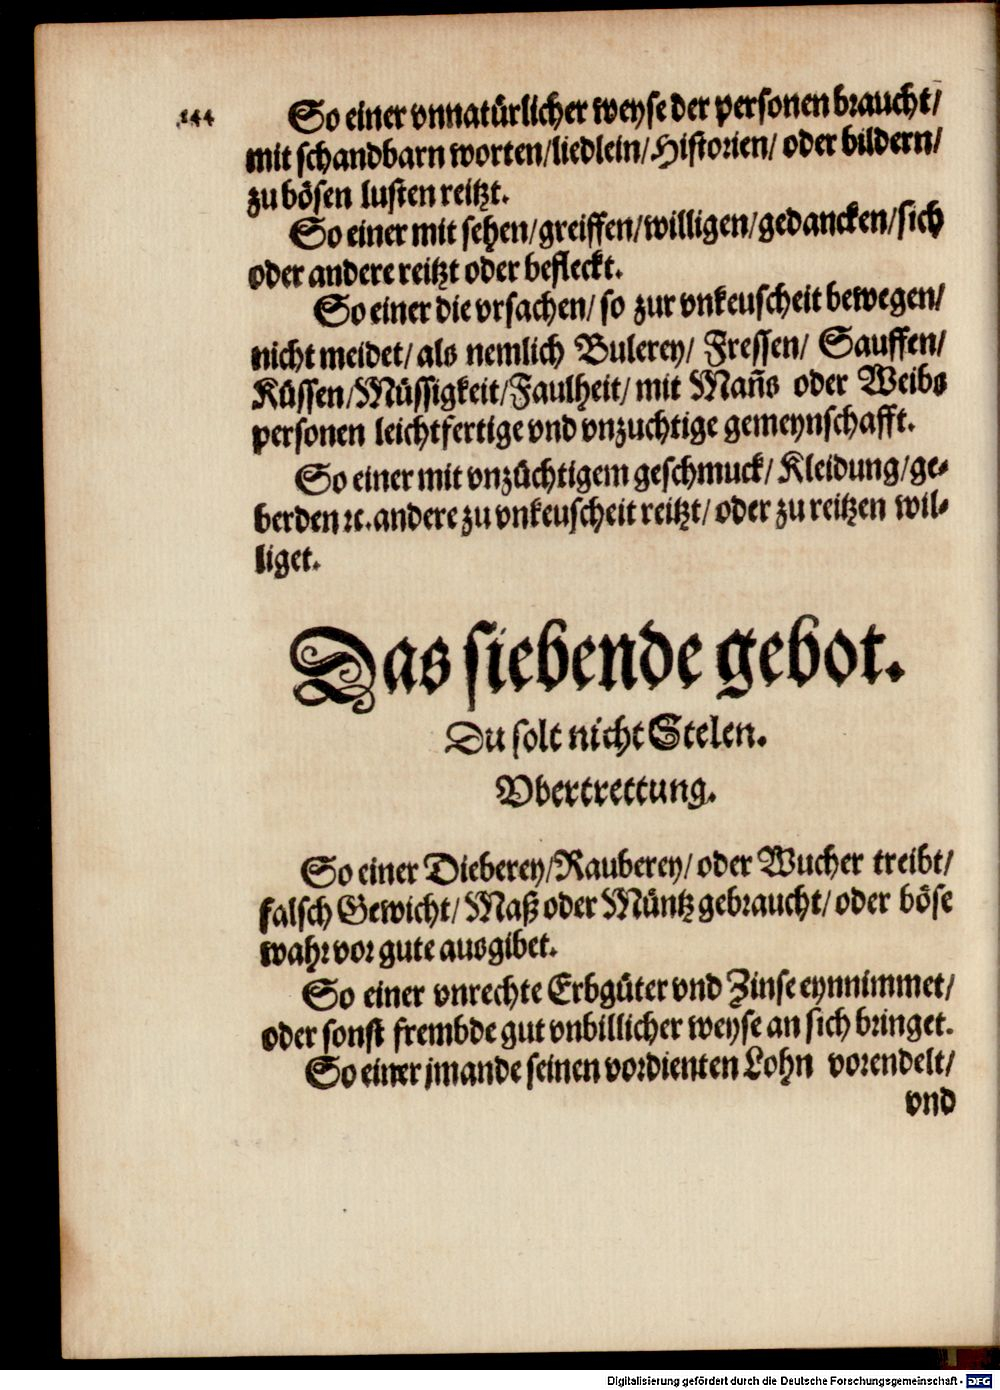 144
So einer vnnatürlicher weyse der personen braucht/
mit schandbarn worten/liedlein/Historien/ oder bildern/
zu bösen lusten reitzt.
So einer mit sehen/greiffen/willigen/gedancken/sich
oder andere reitzt oder befleckt.
So einer die vrsachen/ so zur vnkeuscheit bewegen/
nicht meidet/ als nemlich Bulerey/ Fressen/ Sauffen/
Küssen/Müssigkeit/Faulheit/ mit Mañs oder Weibs
personen leichtfertige vnd vnzuchtige gemeynschafft.
So einer mit vnzüchtigem geschmuck/ Kleidung/ge⸗
berden ꝛc. andere zu vnkeuscheit reitzt/ oder zu reitzen wil⸗
liget.
Das siebende gebot.
Du solt nicht Stelen.
Vbertrettung.
So einer Dieberey/Rauberey/ oder Wucher treibt/
falsch Gewicht/ Maß oder Müntz gebraucht/ oder böse
wahr vor gute ausgibet.
So einer vnrechte Erbgüter vnd Zinse eynnimmet/
oder sonst frembde gut vnbillicher weyse an sich bringet.
So einer jmande seinen vordienten Lohn vorendelt/
vnd
Digitalisierung gefördert durch die Deutsche Forschungsgemeinschaft - DFG